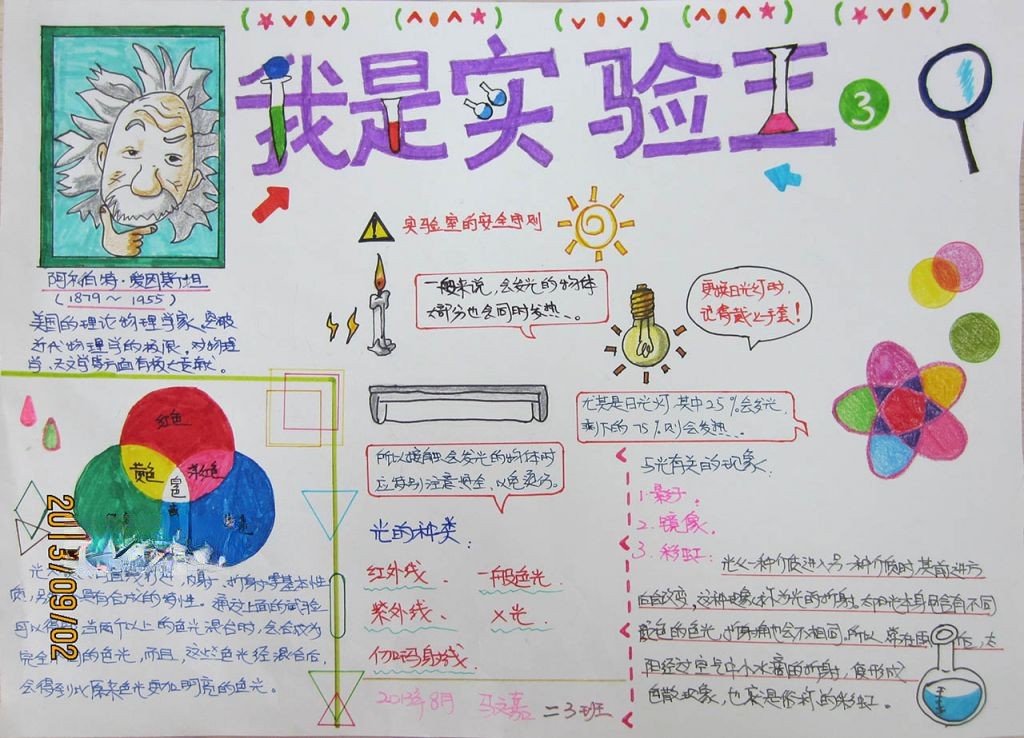 我是实验王
3
阿尔伯特·爱因斯坦
(1879～1955)
美国的理论物理学家,突破
近代物理学的极限,对物理
学、天文学等方面有极大贡献。
实验室的安全守则
一般来说,会发光的物体
大部分也会同时发热、。
更换日光灯时,
记得戴上手套!
尤其是日光灯 其中25%会发光,
剩下的75%则会发热、、
所以接触会发光的物体时
应特别注意安全,以免烫伤。
红色
黄色
洋红色
白色
光的种类:
红外线、
一般色光、
紫外线、
X光、
伽吗射线、
与光有关的现象:
1.影子、
2.镜像、
3.彩虹:
光从一种介质进入另一种介质时,其前进方
向会改变,这种现象称为光的折射。太阳光本身包含有不同
颜色的色光,折射角也会不相同。所以,常在雨后,太
阳经过空气中小水滴的折射,便形成
色散现象,也就是俗称的彩虹。
折射等基本性
质,另具有合成的特性。通过上面的试验
可以得知,当两个以上的色光混合时,会合成为
完全不同的色光,而且,这些色光经混合后,
会得到比原来色光更加明亮的色光。
2013年8月
马文嘉
二3班
2013/09/02